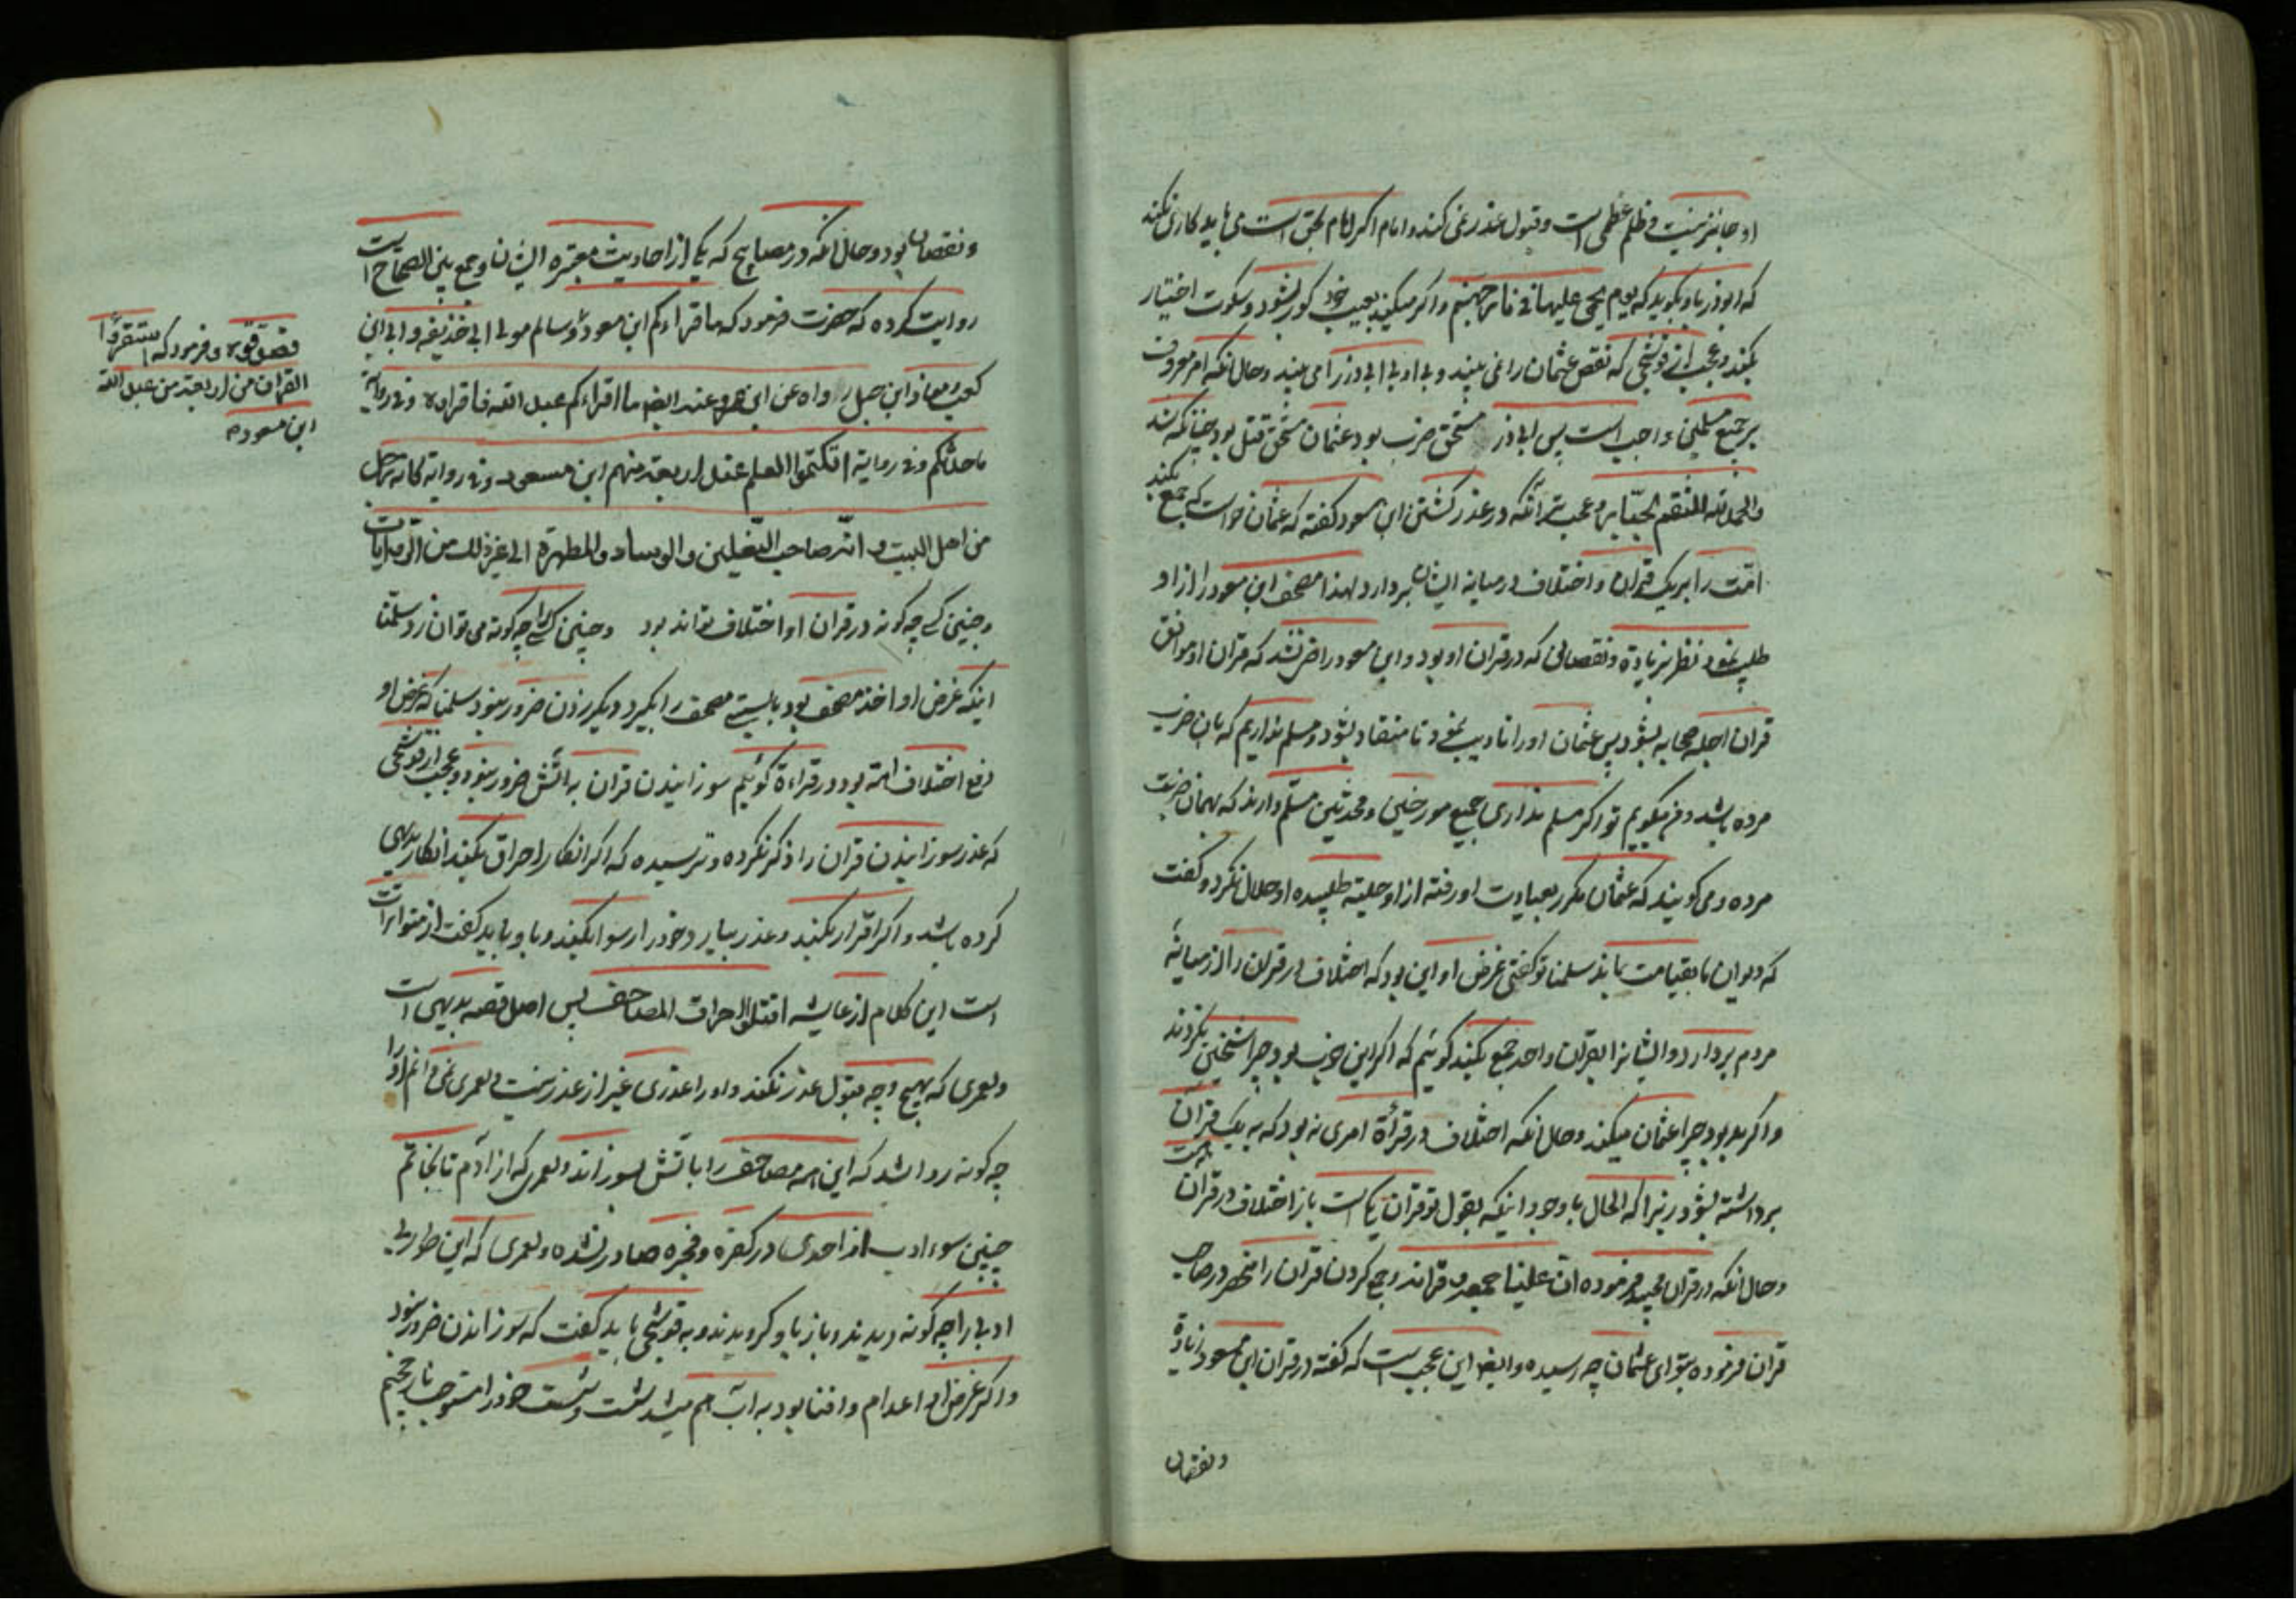 او جایز نیست و ظلم عظمی است و قبول عذر نمی کند و امام اکر امام بحق است می باید کاری نکند
که ابوذر باو بکوید که یوم یحمی علیها فی نار جهنم و اکر میکند بعیب خود کور نشود و سکوت اختیار
بکند و عجب از قوشچی که نقص عثمان را نمی بیند و بی ادبی ابی ذر را می بیند و حال آنکه امر معروف
بر جمیع مسلمین واجب است پس ابی ذر مستحق ضرب بود عثمان مستحق قتل بود چنانکه شد
والحمد لله المنتقم الجبار و عجب تر آنکه در عذر کشتن ابن مسعود کفته که عثمان خواست که جمع بکند
امت را بر یک قران و اختلاف در میانه ایشان بردارد لهذا مصحف ابن مسعود را از او
طلب نمود نظر بزیادة و نقصانی که در قران او بود و ابن مسعود راضی نشد که قران او موافق
قران اجله صحابه بشود پس عثمان او را تادیب نمود تا منقاد بشود و مسلم نداریم که بان ضرب
مرده باشد و من میکویم تو اکر مسلم نداری جمیع مورخین و محدثین مسلم دارند که بهمان ضربت
مرده و می کویند که عثمان مکرر بعیادت او رفته از او حلیة طلبیده او حلال نکرد و کفت
که دیوان ما بقیامت ماند سلمنا تو کفتی غرض او این بود که اختلاف در قران را از میانه
مردم بردارد و ایشانرا بقران واحد جمع بکند کوئیم که اکر این خوب بود چرا شیخین نکردند
و اکر بد بود چرا عثمان میکند و حال انکه اختلاف در قرأة امری نه بود که به یک قران
برداشته بشود زیرا که الحال با وجود اینکه بقول تو قران یکی است باز اختلاف در قران است
و حال انکه در قران مجید فرموده ان علینا جمعه و قرانه و جمع کردن قران را منحصر در صاحب
قران فرموده بتو ای عثمان چه رسیده و ایضا این عجب است که کفته در قران ابن مسعود زیادة
و نقصان
و نقصان بود و حال انکه در مصابیح که یکی از احادیث معتبره ایشان و جمع بین الصحاح است
روایت کرده که حضرت فرمود که ما قراءکم ابن مسعود و سالم مولی ابی حذیفه و ابی ابن
کعب و معاذ ابن جبل رواه عن ابن عمرو عنه ایضا ما اقراءکم عبد الله فاقراوه و فی روایة
ما حدثکم و فی روایة التکتموا العلم عند اربعة منهم ابن مسعود و فی روایة کانه رجل
من اهل البیت و انه صاحب النعلین والوساد والمطهرة الی غیر ذلک من الروایات
و چنین کسی چه کونه در قران او اختلاف تواند بود و چنین کسی را چه کونه می توان زد سلمنا
اینکه غرض او اخذ مصحف بود بایستی مصحف را بکیرد دیکر زدن ضرور نبود سلمنا که غرض او
رفع اختلاف امة بود در قراءة کوئیم سوزانیدن قران به آتش ضرور نبود و عجب از قوشچی
که عذر سوزانیدن قران را ذکر نکرده و ترسیده که اکر انکار احراق بکند انکار بدیهی
کرده باشد و اکر اقرار بکند و عذر بیارد خود را رسوا بکند و باو باید کفت از متواترات
است این کلام از عایشه اقتلوا حراق المصاحف پس اصل قصه بدیهی است
و لعمری که بهیچ وجه قبول عذر نکند و او را عذری غیر از عذر نیست و لعمری نمی دانم او را
چه کونه روا شد که این همه مصاحف را باتش بسوزاند و لعمری که از آدم تا بخاتم
چنین سوء ادب از احدی در کفره و فجره صادر نشده و لعمری که این طور بی
ادبی را چه کونه دیدند و باز باو کرویدند و به قوشچی باید کفت که سوزاندن ضرور نبود
و اکر غرض او اعدام و افنا بود به آب هم میتوانست شست خود را مستوجب نار جحیم
فصدقوه و فرمود که استقرؤا
القران من اربعة من عبد الله
ابن مسعود